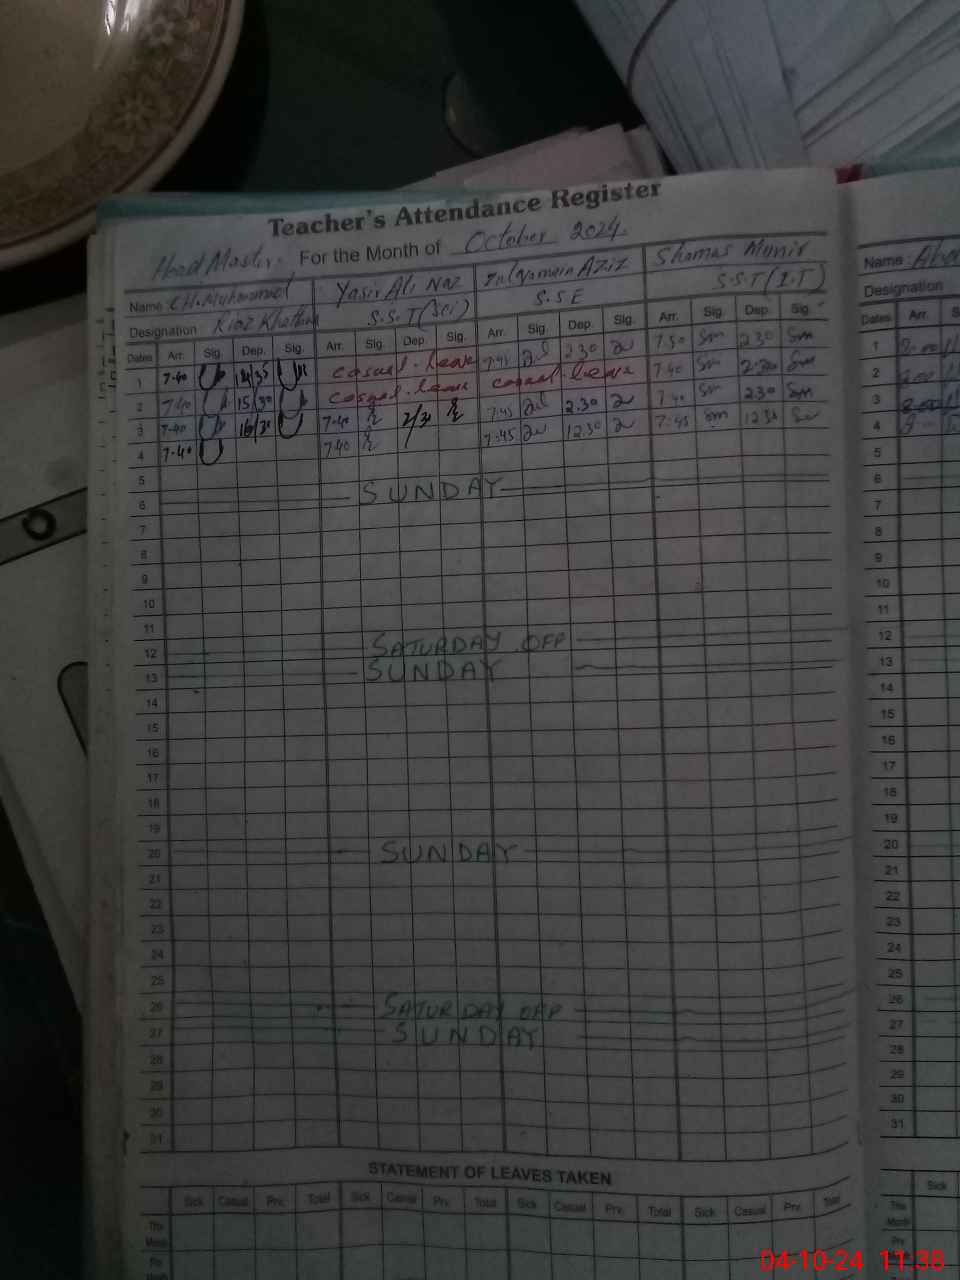 Teacher's Attendance Register
Head Master. For the Month of October 2024.
Name Ch. Muhammad Yasir Ali Naz Zulqarnain Aziz Shamas Munir Name:
Designation Riaz S.S.T (Sci) S.S.E S.S.T (I.T) Designation
Dates Arr. Sig. Dep. Sig. Arr. Sig. Dep. Sig. Arr. Sig. Dep. Sig. Arr. Sig. Dep. Sig. Dates Arr.
1 7-40 casual. leave 7:45 2.30 7:50 Sm 2.30 Sm 1
2 7:40 15/30 casual. leave casual. leave 7:40 Sm 2:30 Sm 2
3 7:40 7-40 2/30 7:45 2.30 7:40 Sm 230 Sm 3
4 7.40 7:40 7:45 12.30 7:45 Sm 12:30 4
5 5
6 SUNDAY 6
7 7
8 8
9 9
10 10
11 11
12 SATURDAY OFF 12
13 SUNDAY 13
14 14
15 15
16 16
17 17
18 18
19 19
20 SUNDAY 20
21 21
22 22
23 23
24 24
25 25
26 SATURDAY OFF 26
27 SUNDAY 27
28 28
29 29
30 30
31 31
STATEMENT OF LEAVES TAKEN
Sick Casual Prv. Total Sick Casual Prv. Total Sick Casual Prv. Total Sick Casual Prv. Total Sick
This Month This Month
Prv. Month Prv.
04-10-24 11:38